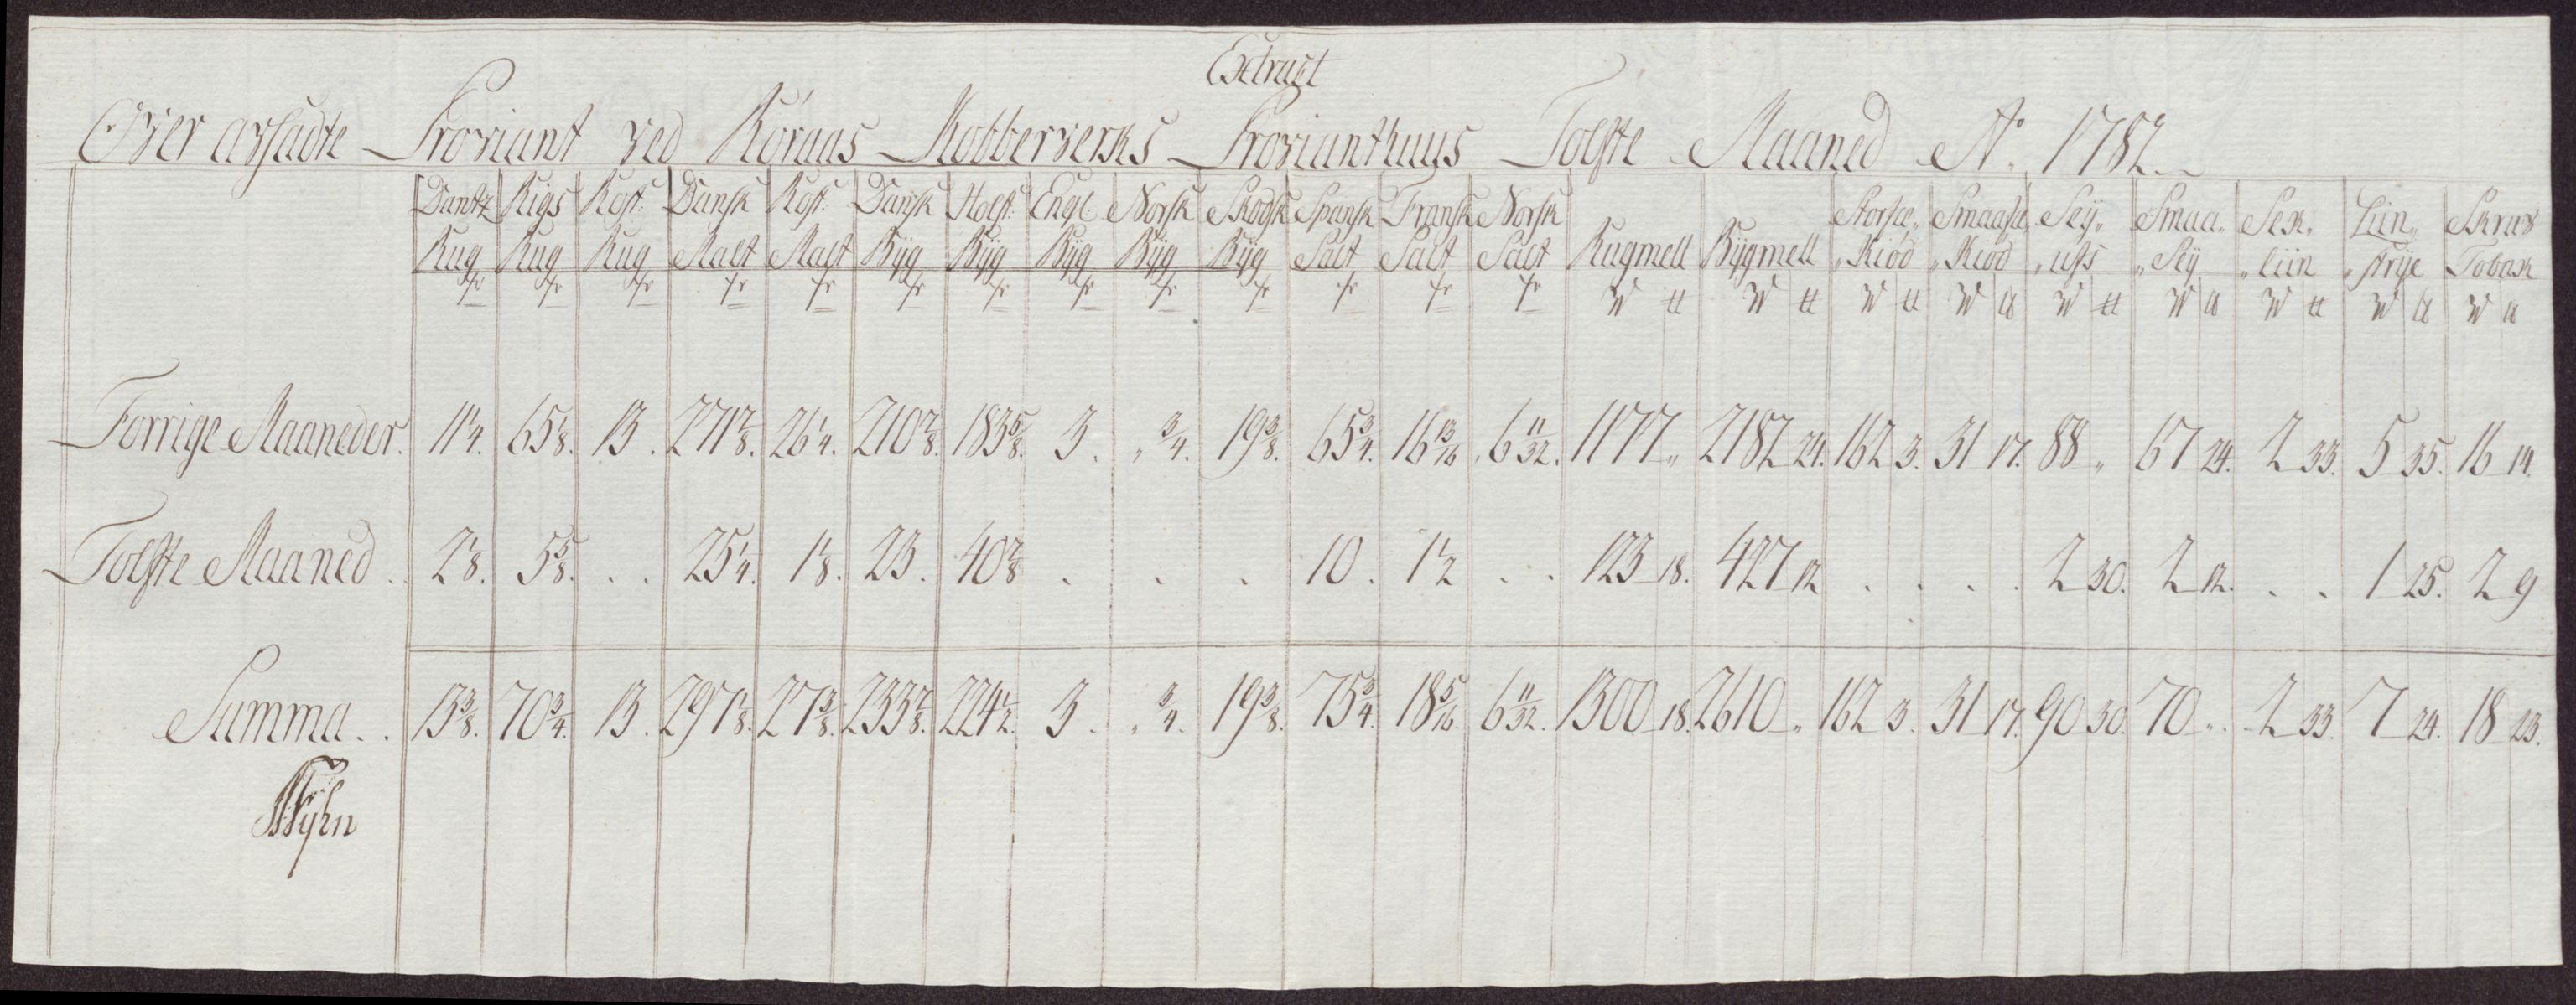 Extract
Over afsadte Proviant ved Röraas Kobberverks Provianthuus Tolfte Maaned Aº 1782
Dantz Rug Tr
Rigs Rug Tr
Rost: Rug Tr
Dansk Malt Tr
Rost: Malt Tr
Dansk Byg Tr
Holst: Byg Tr
Engl Byg Tr
Norsk Byg Tr
Skodsk Byg Tr
Spansk Salt Tr
Fransk Salt Tr
Norsk Salt Tr
Rugmell W ℔
Bygmell W ℔
Kiöd W ℔
Kiöd W ℔
Sey„ „ufs W ℔
Smaa„ „Sey W ℔
W ℔
W ℔
Tobak W ℔
Forrige Maaneder. 11 1/4. 65 1/8. 13. 271 7/8. 26 1/4. 210 7/8. 183 5/8. 3. „ 3/4. 19 3/8. 65 3/4. 16 13/16 6 11/32. 1177 „ 2182 24. 162 3. 31 17. 88 „ 67 24. 2 33. 5 35. 16 14.
Tolfte Maaned . . 2 1/8. 5 5/8. . . 25 1/4. 1 1/8. 23. 40 7/8 . . . 10. 1 1/2 . . 123 18. 427 12 . . . . 2 30. 2 12. . . 1 25. 2 9
Summa . . 13 3/8. 70 3/4. 13. 297 1/8. 27 3/8. 233 7/8. 224 1/2. 3. „ 3/4. 19 3/8. 75 3/4. 18 5/16. 6 11/32. 1300 18. 2610 „ 162 3. 31 17. 90 30. 70 „ 2 33. 7 24. 18 23.